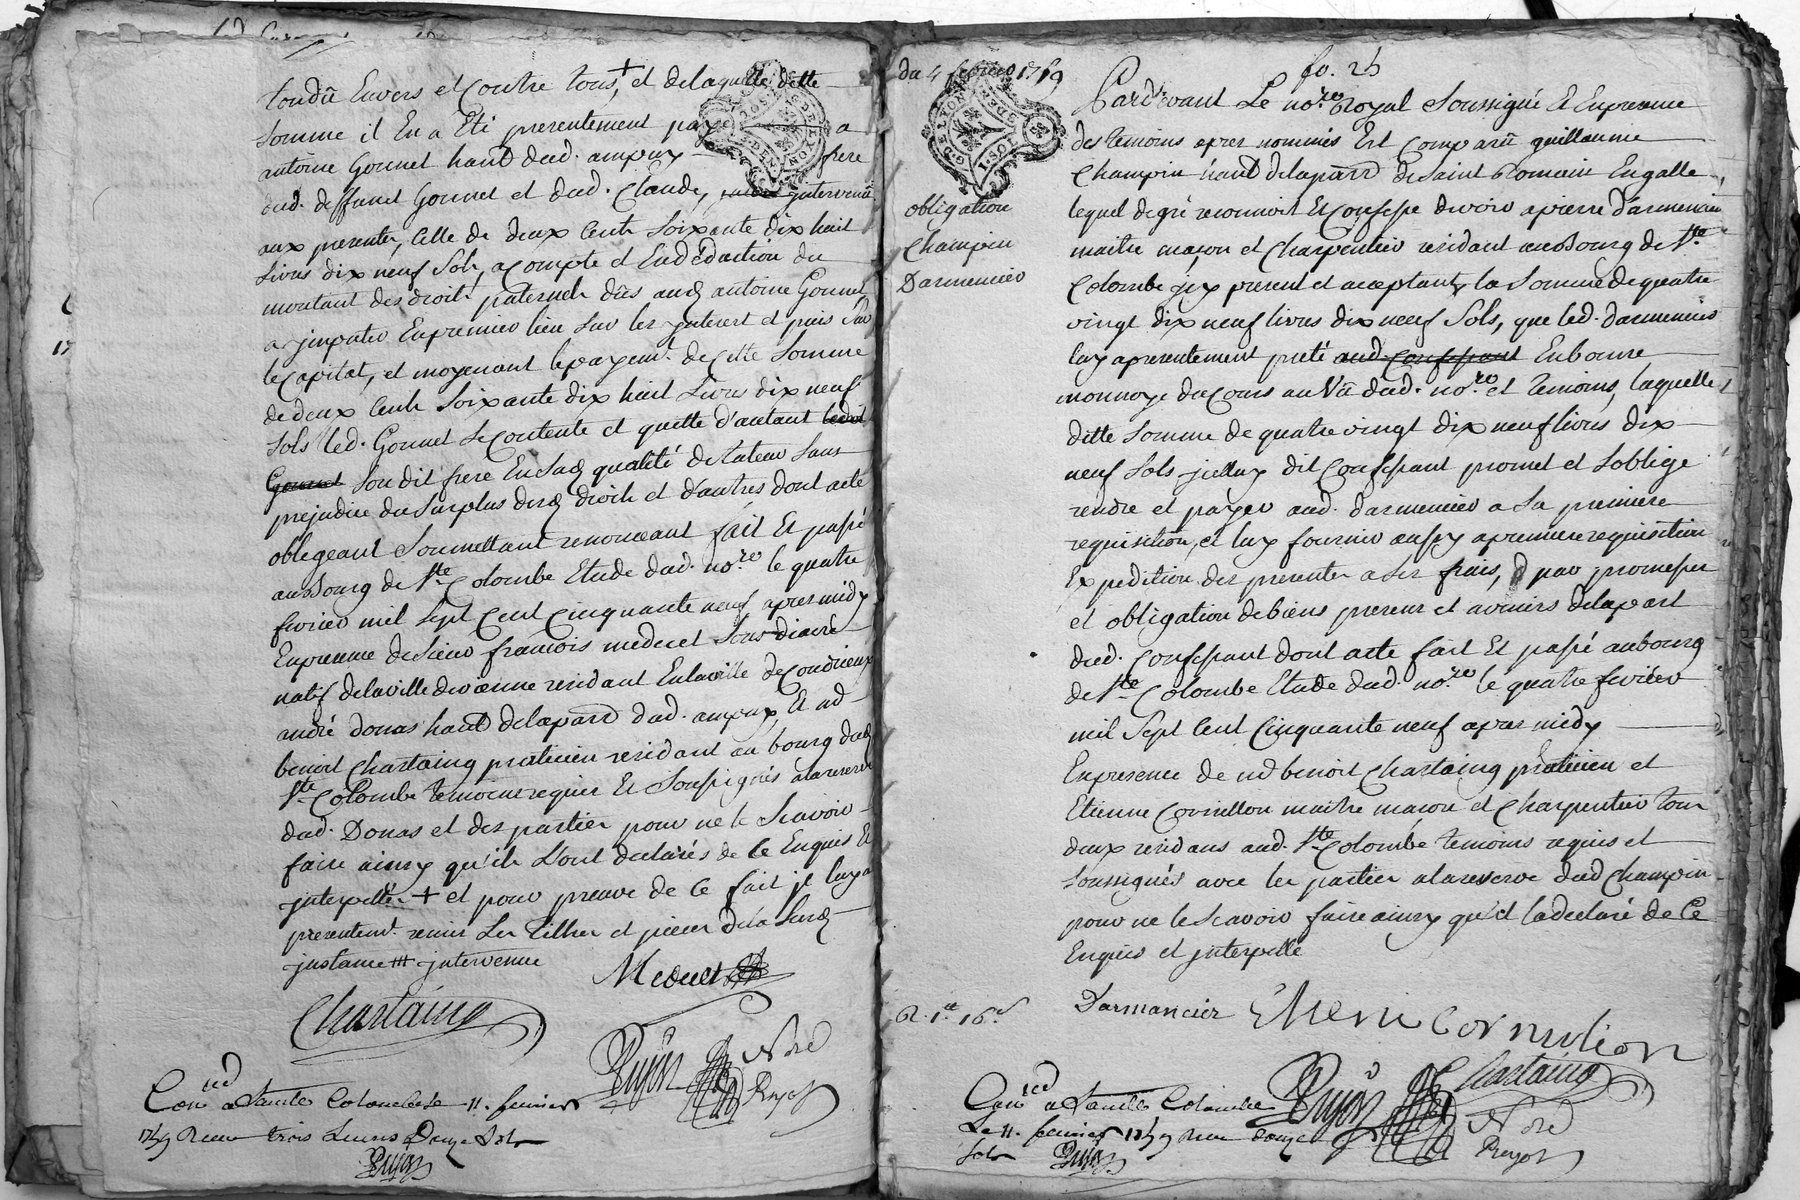 tondû Envers et Contre tous, + et delaquelle ditte
Somme il En a Eté presentement payé a
antoine Gonnet habt dud. ampuy frere
dud. deffunt Gonnet et dud. Claude, intervenu
aux presentes, Celle de deux Cents Soixante dix huit
Livres dix neuf Sols, acompte et En deduction du
montant des droits paternels dûs aud antoine Gonnet
a jmputer En premier lieu Sur les jnterest et puis Sur
le Capital, et moyenant le payemt. de Cette Somme
de deux Cents Soixante dix huit Livres dix neuf
Sols led. Gonnet Se Contente et quitte d'autant ledit
Gonnet Son dit frere En Sad qualité de tuteur Sans
prejudice du Surplus desd droits et d'autres dont acte
obligeant Soumettant renonceant fait Et passé
au Bourg de Ste Colombe Etude dud. nore le quatre
fevrier mil Sept Cent Cinquante neuf apres midy
En presence de Sieur francois medecet Sous diacre
natif de la ville de vienne residant En la ville de Condrieux
andré donas habt de la parr dud. ampuy, Et md
benoit Chastaing praticien residant au bourg dud
Ste Colombe temoins requis Et Soussignés a la reserve
dud. Donas et des parties pour ne le Scavoir
faire ainsy qu'ils L'ont declarés de Ce Enquis Et
jnterpellés + et pour preuve de Ce fait jl luy a
presentemt. remis Les titres et pieces de la Susd
jnstance ### jntervenue
Medecet
Chastaing
Guyot Nore Royal
Conlé a Sainte Colombe le 11. fevrier
1759 Receu trois Livres Douze Sols
Guyot
du 4 fevrier 1759
fo. 25
obligation
Champin
Darmencier
Pardevant Le nore Royal Soussigné Et En presence
des temoins apres nommés Est Comparû guillaume
Champin habt de la parr de Saint Romain En galle
lequel de gré reconnoit Et Confesse devoir a pierre D'armencier
maitre maçon et Charpentier residant au Bourg de Ste
Colombe jcy present et acceptant, la Somme de quatre
vingt dix neuf livres dix neuf Sols, que led. darmencier
luy a presentement preté aud Confessant En bonne
monnoye du Cours au Vû dud. nore et temoins, laquelle
ditte Somme de quatre vingt dix neuf livres dix
neuf Sols jcelluy dit Confessant promet et Soblige
rendre et payer aud. darmencier a Sa premiere
requisition, et luy fournir aussy a premiere requisition
Expedition des presentes a Ses frais, par promesses
et obligation de biens presens et avenirs de la part
dud. Confessant dont acte fait Et passé au bourg
de Ste Colombe Etude dud. nore le quatre fevrier
mil Sept Cent Cinquante neuf apres midy
En presence de md benoit Chastaing praticien et
Etienne Cornillon maitre macon et Charpentier tous
deux residans aud. Ste Colombe temoins requis et
Soussignés avec les parties a la reserve dud Champin
pour ne le Scavoir faire ainsy qu'il la declaré de Ce
Enquis et jnterpellé
R. 1.tt 16.s
D'armancier Etieni Cornulion
Chastaing
Guyot Nore Royal
Conlé a Sainte Colombe
Le 11. fevrier 1759 Receu Douze
Sols Guyot